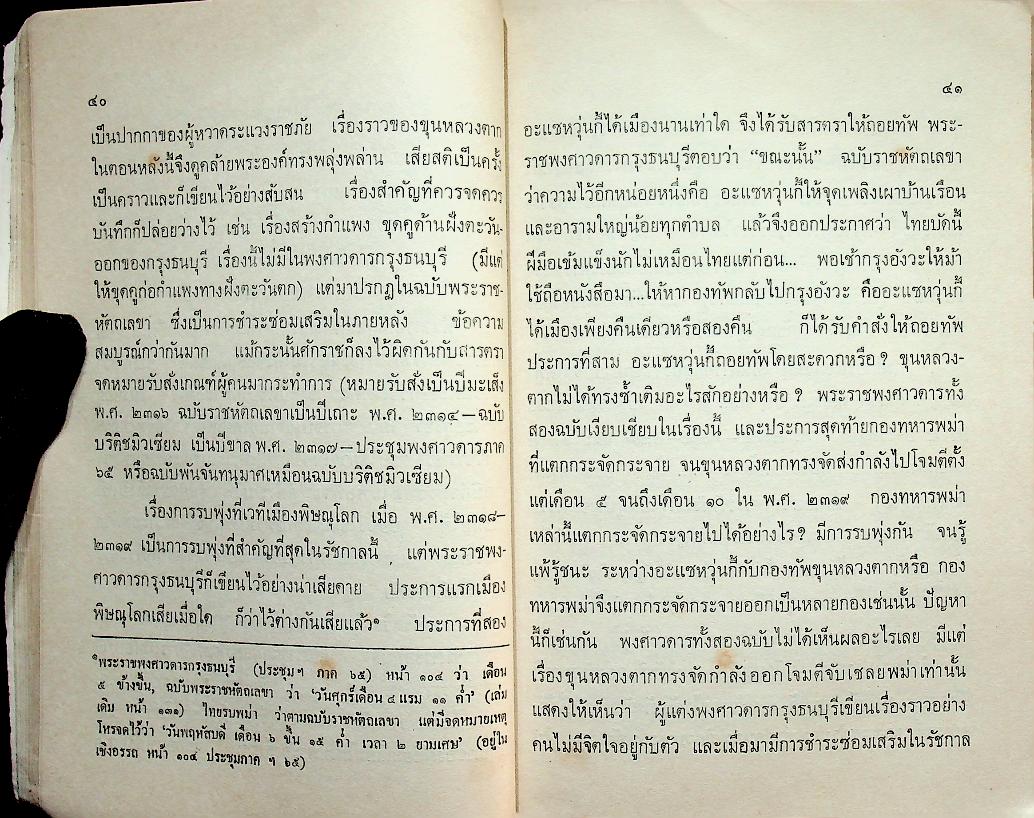 ๔๐
เป็นปากกาของผู้หวาดระแวงราชภัย เรื่องราวของขุนหลวงตาก
ในตอนหลังนี้จึงดูคล้ายพระองค์ทรงพลุ่งพล่าน เสียสติเป็นครั้ง
เป็นคราวและก็เขียนไว้อย่างสับสน เรื่องสำคัญที่ควรจดควร
บันทึกก็ปล่อยว่างไว้ เช่น เรื่องสร้างกำแพง ขุดคูด้านฝั่งตะวัน-
ออกของกรุงธนบุรี เรื่องนี้ไม่มีในพงศาวดารกรุงธนบุรี (มีแต่
ให้ขุดคูก่อกำแพงทางฝั่งตะวันตก) แต่มาปรกฏในฉบับพระราช-
หัตถเลขา ซึ่งเป็นการชำระซ่อมเสริมในภายหลัง ข้อความ
สมบูรณ์กว่ากันมาก แม้กระนั้นศักราชก็ลงไว้ผิดกันกับสารตรา
จดหมายรับสั่งเกณฑ์ผู้คนมากระทำการ (หมายรับสั่งเป็นปีมะเส็ง
พ.ศ. ๒๓๑๖ ฉบับราชหัตถเลขาเป็นปีเถาะ พ.ศ. ๒๓๑๔—ฉบับ
บริติชมิวเซียม เป็นปีขาล พ.ศ. ๒๓๑๗—ประชุมพงศาวดารภาค
๖๕ หรือฉบับพันจันทนุมาศเหมือนฉบับบริติชมิวเซียม)
เรื่องการรบพุ่งที่เวทีเมืองพิษณุโลก เมื่อ พ.ศ. ๒๓๑๘—
๒๓๑๙ เป็นการรบพุ่งที่สำคัญที่สุดในรัชกาลนี้ แต่พระราชพง-
ศาวดารกรุงธนบุรีก็เขียนไว้อย่างน่าเสียดาย ประการแรกเมือง
พิษณุโลกเสียเมื่อใด ก็ว่าไว้ต่างกันเสียแล้ว๑ ประการที่สอง
๑พระราชพงศาวดารกรุงธนบุรี (ประชุมฯ ภาค ๖๕) หน้า ๑๐๔ ว่า เดือน
๕ ข้างขึ้น, ฉบับพระราชหัตถเลขา ว่า ‘วันศุกร์เดือน ๔ แรม ๑๑ ค่ำ’ (เล่ม
เดิม หน้า ๑๓๑) ไทยรบพม่า ว่าตามฉบับราชหัตถเลขา แต่มีจดหมายเหตุ
โหรจดไว้ว่า ‘วันพฤหัสบดี เดือน ๖ ขึ้น ๑๕ ค่ำ เวลา ๒ ยามเศษ’ (อยู่ใน
เชิงอรรถ หน้า ๑๐๔ ประชุมภาค ฯ ๖๕)
๔๑
อะแซหวุ่นกี้ได้เมืองนานเท่าใด จึงได้รับสารตราให้ถอยทัพ พระ-
ราชพงศาวดารกรุงธนบุรีตอบว่า “ขณะนั้น” ฉบับราชหัตถเลขา
ว่าความไว้อีกหน่อยหนึ่งคือ อะแซหวุ่นกี้ให้จุดเพลิงเผาบ้านเรือน
และอารามใหญ่น้อยทุกตำบล แล้วจึงออกประกาศว่า ไทยบัดนี้
ฝีมือเข้มแข็งนักไม่เหมือนไทยแต่ก่อน... พอเช้ากรุงอังวะให้ม้า
ใช้ถือหนังสือมา...ให้หากองทัพกลับไปกรุงอังวะ คืออะแซหวุ่นกี้
ได้เมืองเพียงคืนเดียวหรือสองคืน ก็ได้รับคำสั่งให้ถอยทัพ
ประการที่สาม อะแซหวุ่นกี้ถอยทัพโดยสะดวกหรือ ? ขุนหลวง-
ตากไม่ได้ทรงซ้ำเติมอะไรสักอย่างหรือ ? พระราชพงศาวดารทั้ง
สองฉบับเงียบเชียบในเรื่องนี้ และประการสุดท้ายกองทหารพม่า
ที่แตกกระจัดกระจาย จนขุนหลวงตากทรงจัดส่งกำลังไปโจมตีตั้ง
แต่เดือน ๕ จนถึงเดือน ๑๐ ใน พ.ศ. ๒๓๑๙ กองทหารพม่า
เหล่านี้แตกกระจัดกระจายไปได้อย่างไร? มีการรบพุ่งกัน จนรู้
แพ้รู้ชนะ ระหว่างอะแซหวุ่นกี้กับกองทัพขุนหลวงตากหรือ กอง
ทหารพม่าจึงแตกกระจัดกระจายออกเป็นหลายกองเช่นนั้น ปัญหา
นี้ก็เช่นกัน พงศาวดารทั้งสองฉบับไม่ได้เห็นผลอะไรเลย มีแต่
เรื่องขุนหลวงตากทรงจัดกำลังออกโจมตีจับเชลยพม่าเท่านั้น
แสดงให้เห็นว่า ผู้แต่งพงศาวดารกรุงธนบุรีเขียนเรื่องราวอย่าง
คนไม่มีจิตใจอยู่กับตัว และเมื่อมามีการชำระซ่อมเสริมในรัชกาล